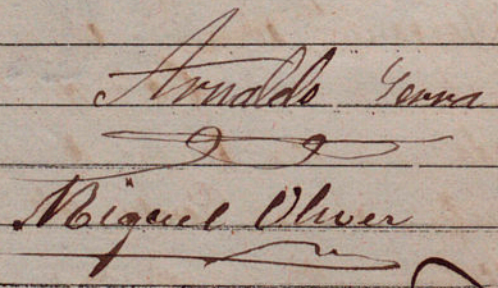 Arnaldo Serra
Miguel Oliver